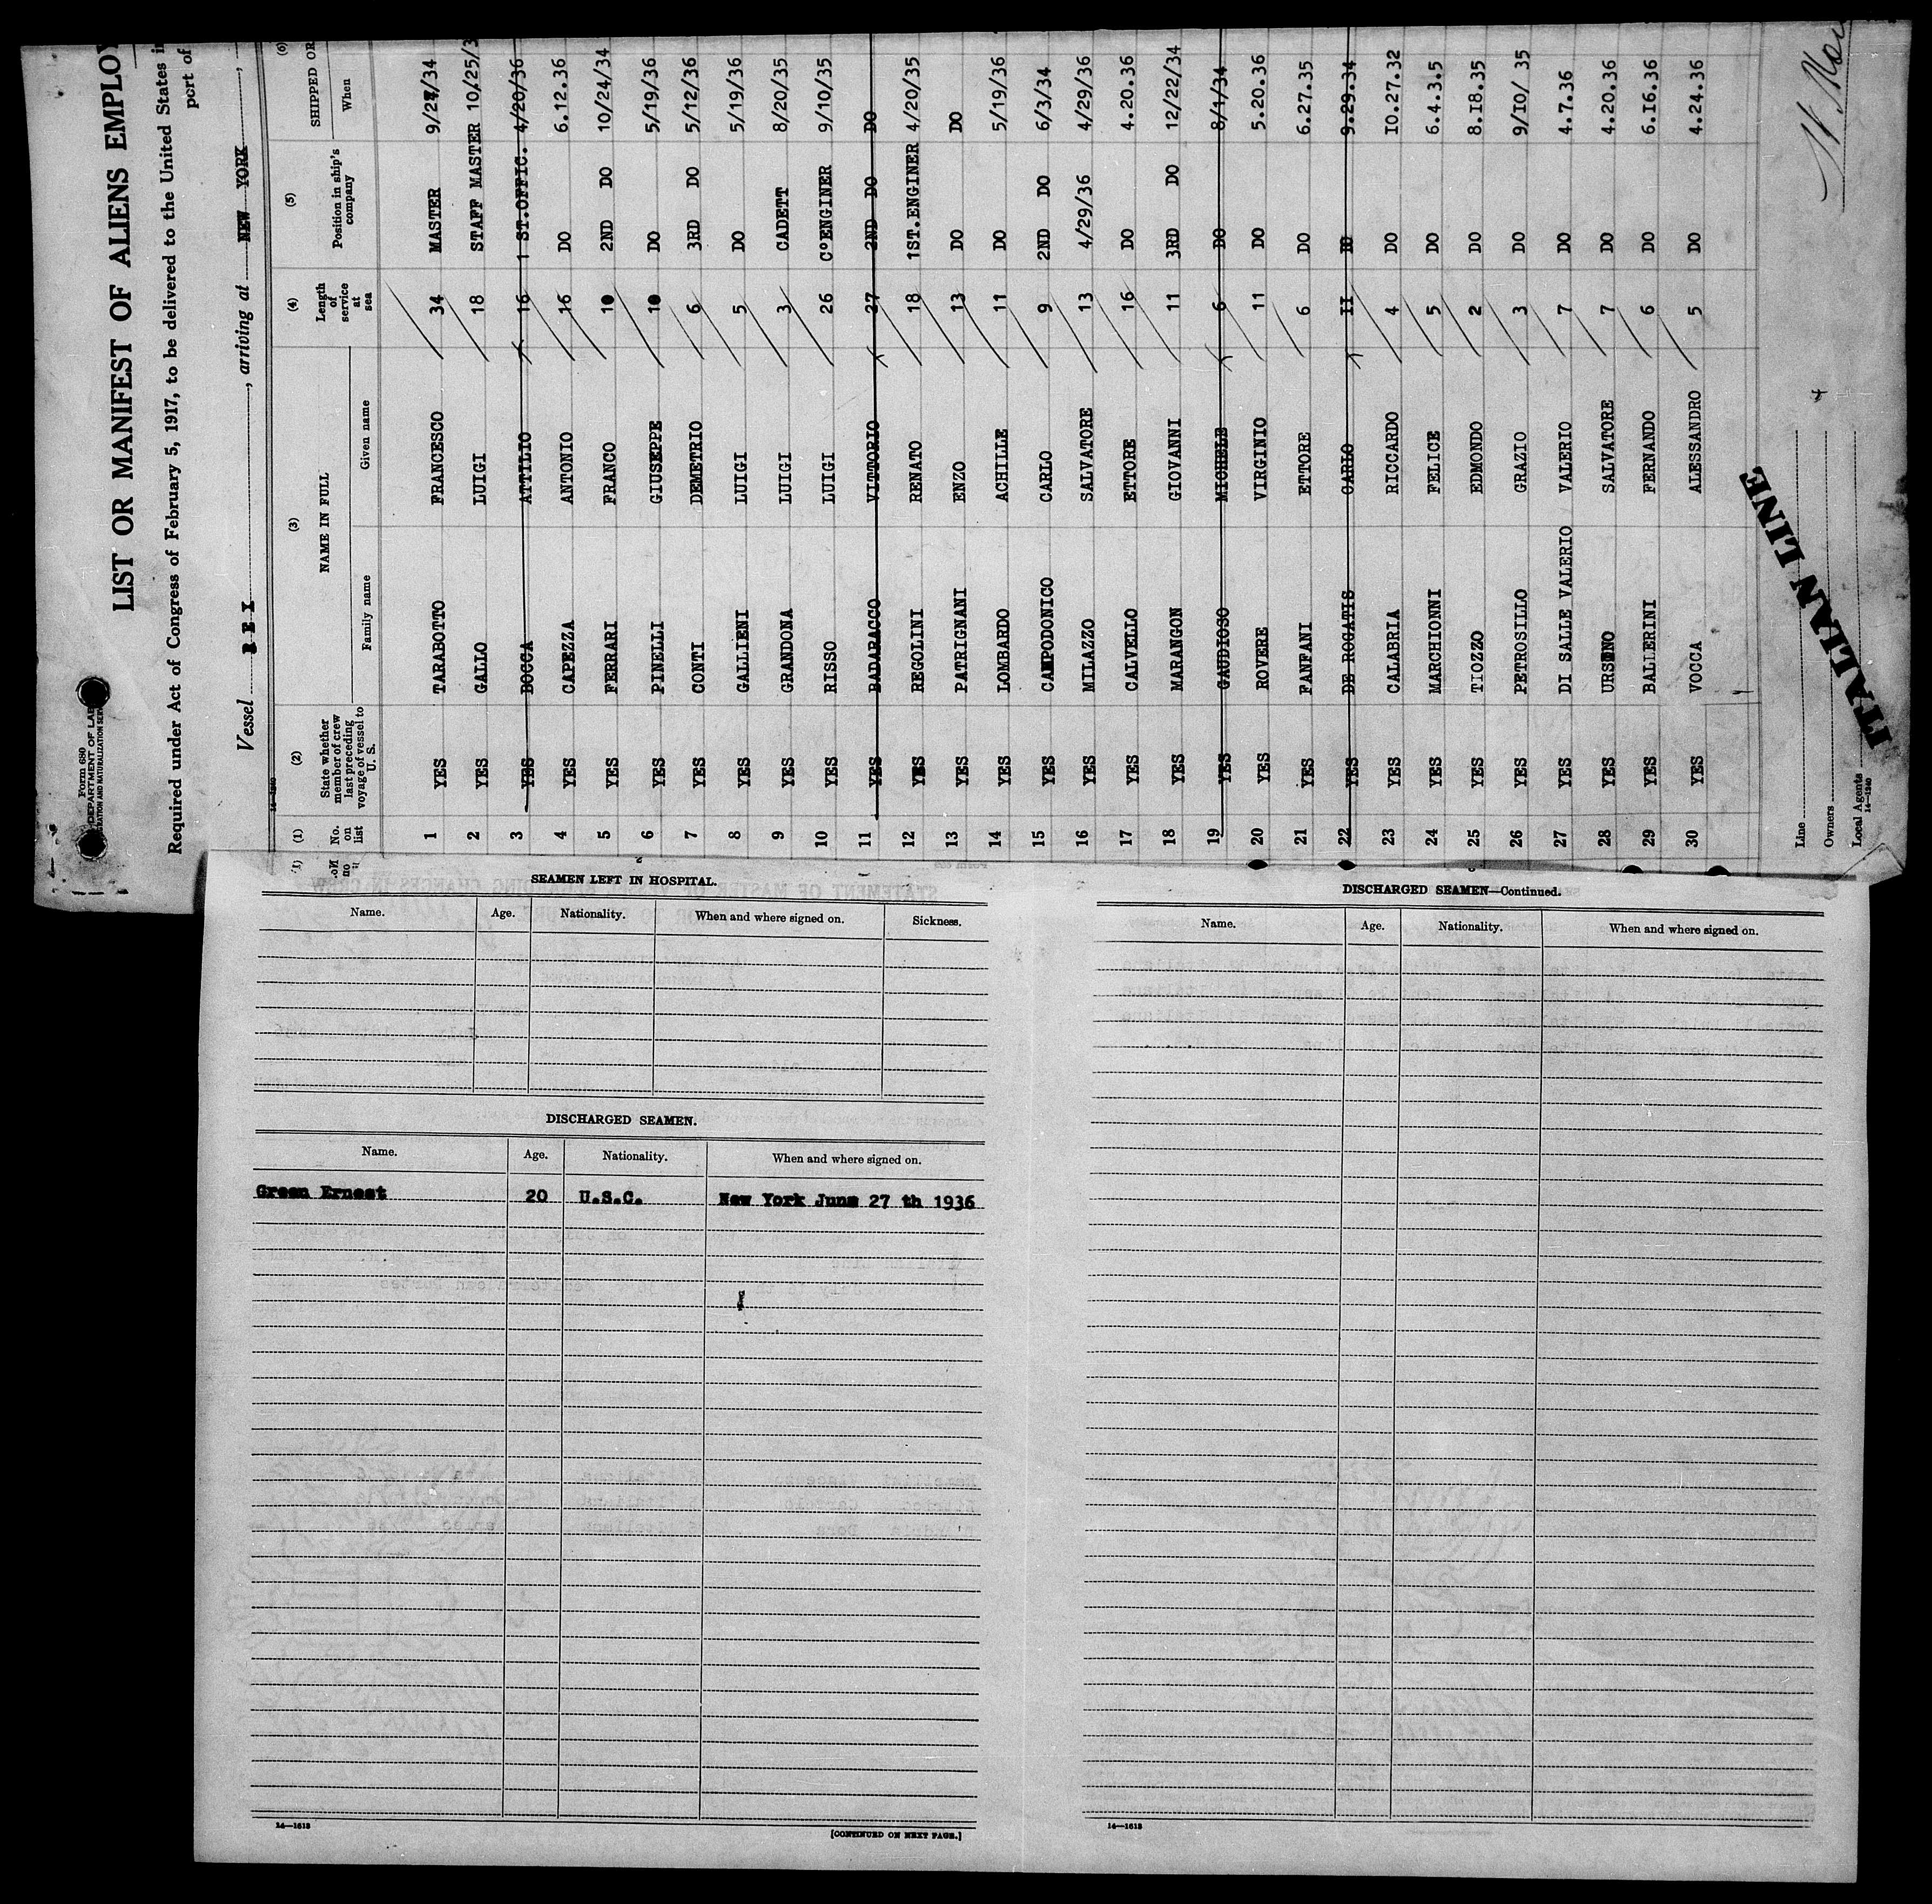 Form 680
DEPARTMENT OF LAB
LIST OR MANIFEST OF ALIENS EMPLOY
Required under Act of Congress of February 5, 1917, to be delivered to the United States i
port of
Vessel R E X , arriving at NEW YORK ,
14—1240
(1) (2) (3) (4) (5) (6)
No. on list
State whether member of crew last preceding voyage of vessel to U. S.
NAME IN FULL
Family name Given name
Length of service at sea
Position in ship's company
SHIPPED OR
When
1 YES TARABOTTO FRANCESCO 34 MASTER 9/27/34
2 YES GALLO LUIGI 18 STAFF MASTER 10/25/3
3 YES BOCCA ATTILIO 16 1 ST.OFFIC. 4/20/36
4 YES CAPEZZA ANTONIO 16 DO 6.12.36
5 YES FERRARI FRANCO 10 2ND DO 10/24/34
6 YES PINELLI GIUSEPPE 10 DO 5/19/36
7 YES CONTI DEMETRIO 6 3RD DO 5/12/36
8 YES GALLIENI LUIGI 5 DO 5/19/36
9 YES GRANDONA LUIGI 3 CADETT 8/20/35
10 YES RISSO LUIGI 26 C°ENGINER 9/10/35
11 YES BADARACCO VITTORIO 27 2ND DO DO
12 YES REGOLINI RENATO 18 1ST.ENGINER 4/20/35
13 YES PATRIGNANI ENZO 13 DO DO
14 YES LOMBARDO ACHILLE 11 DO 5/19/36
15 YES CAMPODONICO CARLO 9 2ND DO 6/3/34
16 YES MILAZZO SALVATORE 13 4/29/36 4/29/36
17 YES CALVELLO ETTORE 16 DO 4.20.36
18 YES MARANGON GIOVANNI 11 3RD DO 12/22/34
19 YES GAUDIOSO MICHELE 6 DO 8/1/34
20 YES ROVERE VIRGINIO 11 DO 5.20.36
21 YES FANFANI ETTORE 6 DO 6.27.35
22 YES DE ROGATIS CARLO II DO 9.29.34
23 YES CALABRIA RICCARDO 4 DO IO.27.32
24 YES MARCHIONNI FELICE 5 DO 6.4.3.5
25 YES TIOZZO EDMONDO 2 DO 8.18.35
26 YES PETROSILLO GRAZIO 3 DO 9/IO/ 35
27 YES DI SALLE VALERIO VALERIO 7 DO 4.7.36
28 YES URSINO SALVATORE 7 DO 4.20.36
29 YES BALLERINI FERNANDO 6 DO 6.16.36
30 YES VOCCA ALESSANDRO 5 DO 4.24.36
Line
Owners
Local Agents
14—1240
ITALIAN LINE
SEAMEN LEFT IN HOSPITAL.
Name. Age. Nationality. When and where signed on. Sickness.
DISCHARGED SEAMEN.
Name. Age. Nationality. When and where signed on.
Green Ernest 20 U.S.C. New York June 27 th 1936
14—1613
[CONTINUED ON NEXT PAGE.]
DISCHARGED SEAMEN—Continued.
Name. Age. Nationality. When and where signed on.
14—1613